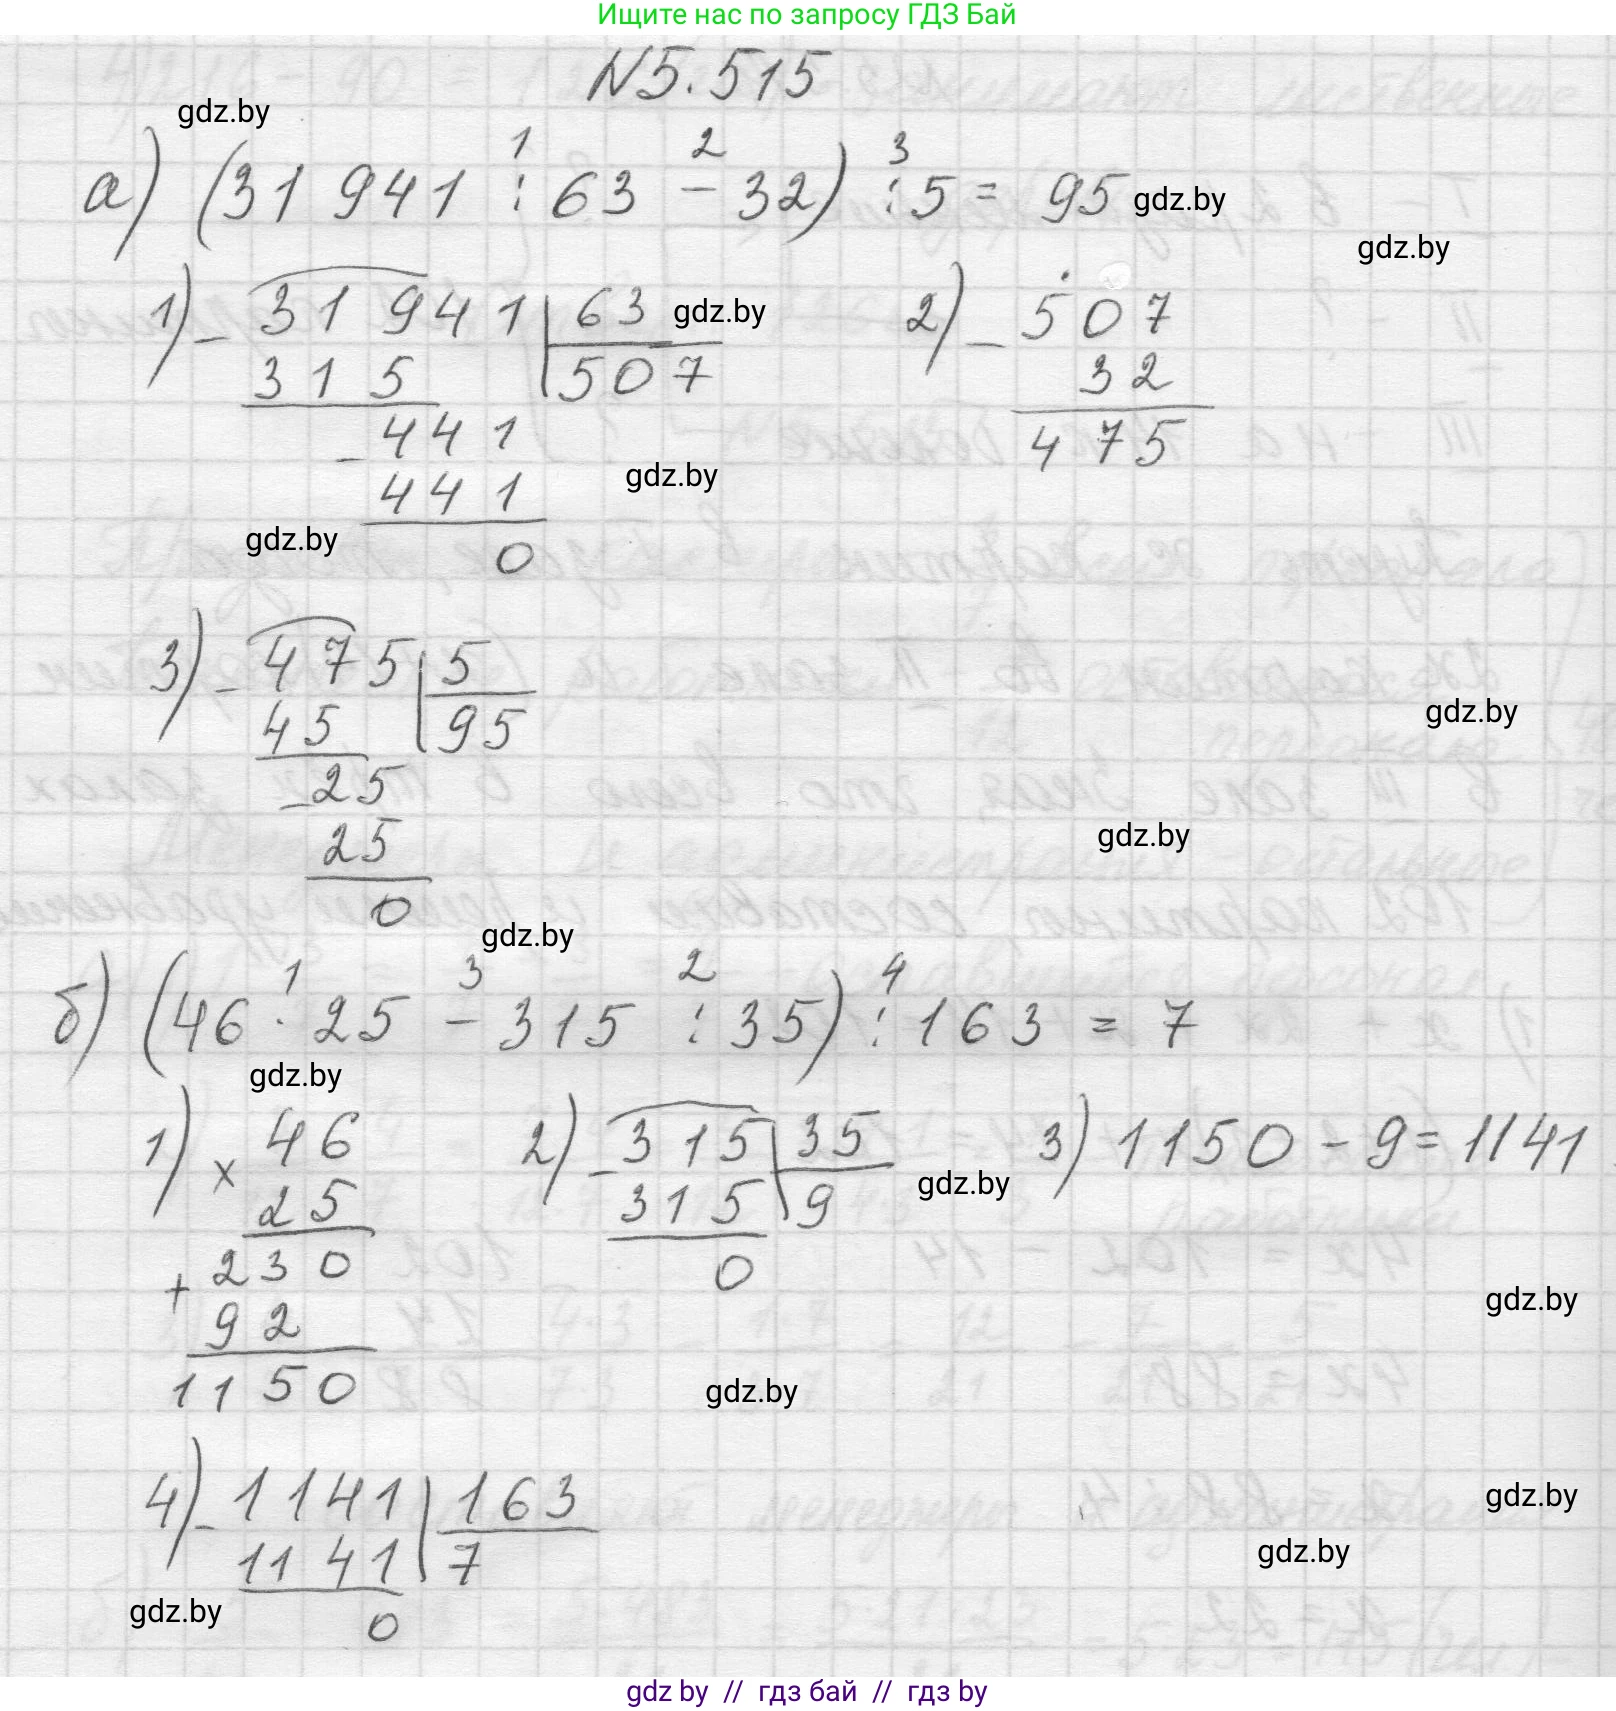 Ищите нас по запросу ГДЗ Бай
N5.515
gdz.by
1 2 3
а) (31 941 : 63 - 32) : 5 = 95 gdz.by
gdz.by
1) - 31941 | 63 gdz.by 2) - 507
315 | 507 32
- 441 475
441 gdz.by
gdz.by
0
3) - 475 | 5
45 | 95 gdz.by
- 25
25 gdz.by
0
gdz.by
1 3 2 4
б) (46 · 25 - 315 : 35) : 163 = 7
gdz.by
1) x 46 2) - 315 | 35 3) 1150 - 9 = 1141
25 315 | 9 gdz.by
+ 230 0
92 gdz.by
1150 gdz.by
4) - 1141 | 163 gdz.by
1141 | 7 gdz.by
gdz.by 0
gdz by // гдз бай // гдз by